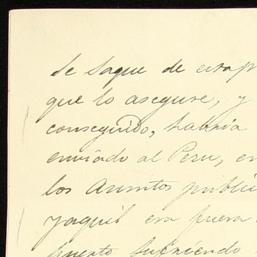 se saque de esta p
que lo asegure, y
conseguido, habria
enviado al Peru, en
los Asuntos public
yaquil era fuera
puesto haciendo